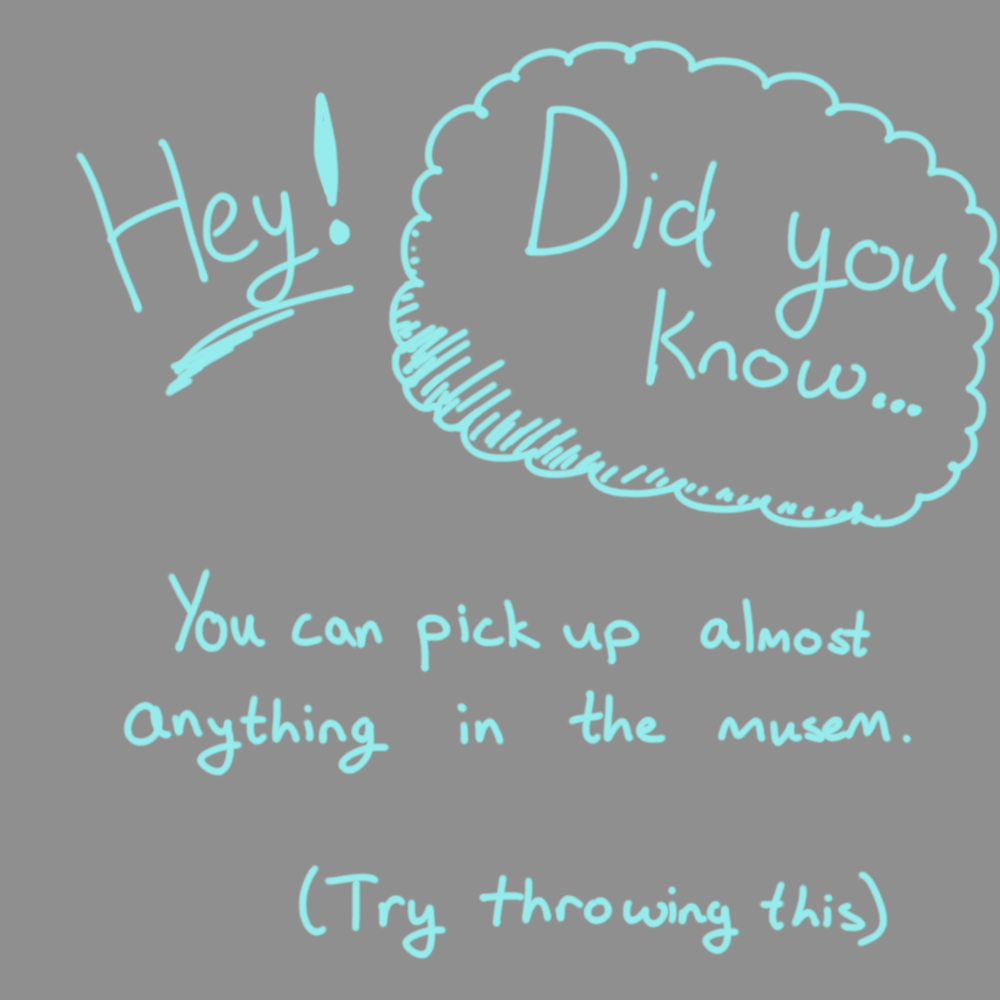 Hey!
Did you
know...
You can pick up almost
anything in the musem.
(Try throwing this)